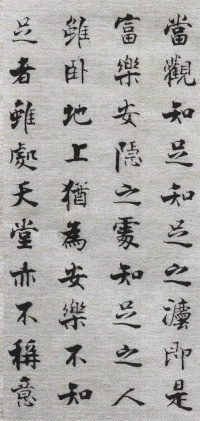 當觀知足知足之灋即是
富樂安隱之處知足之人
雖卧地上猶為安樂不知
足者雖處天堂亦不稱意